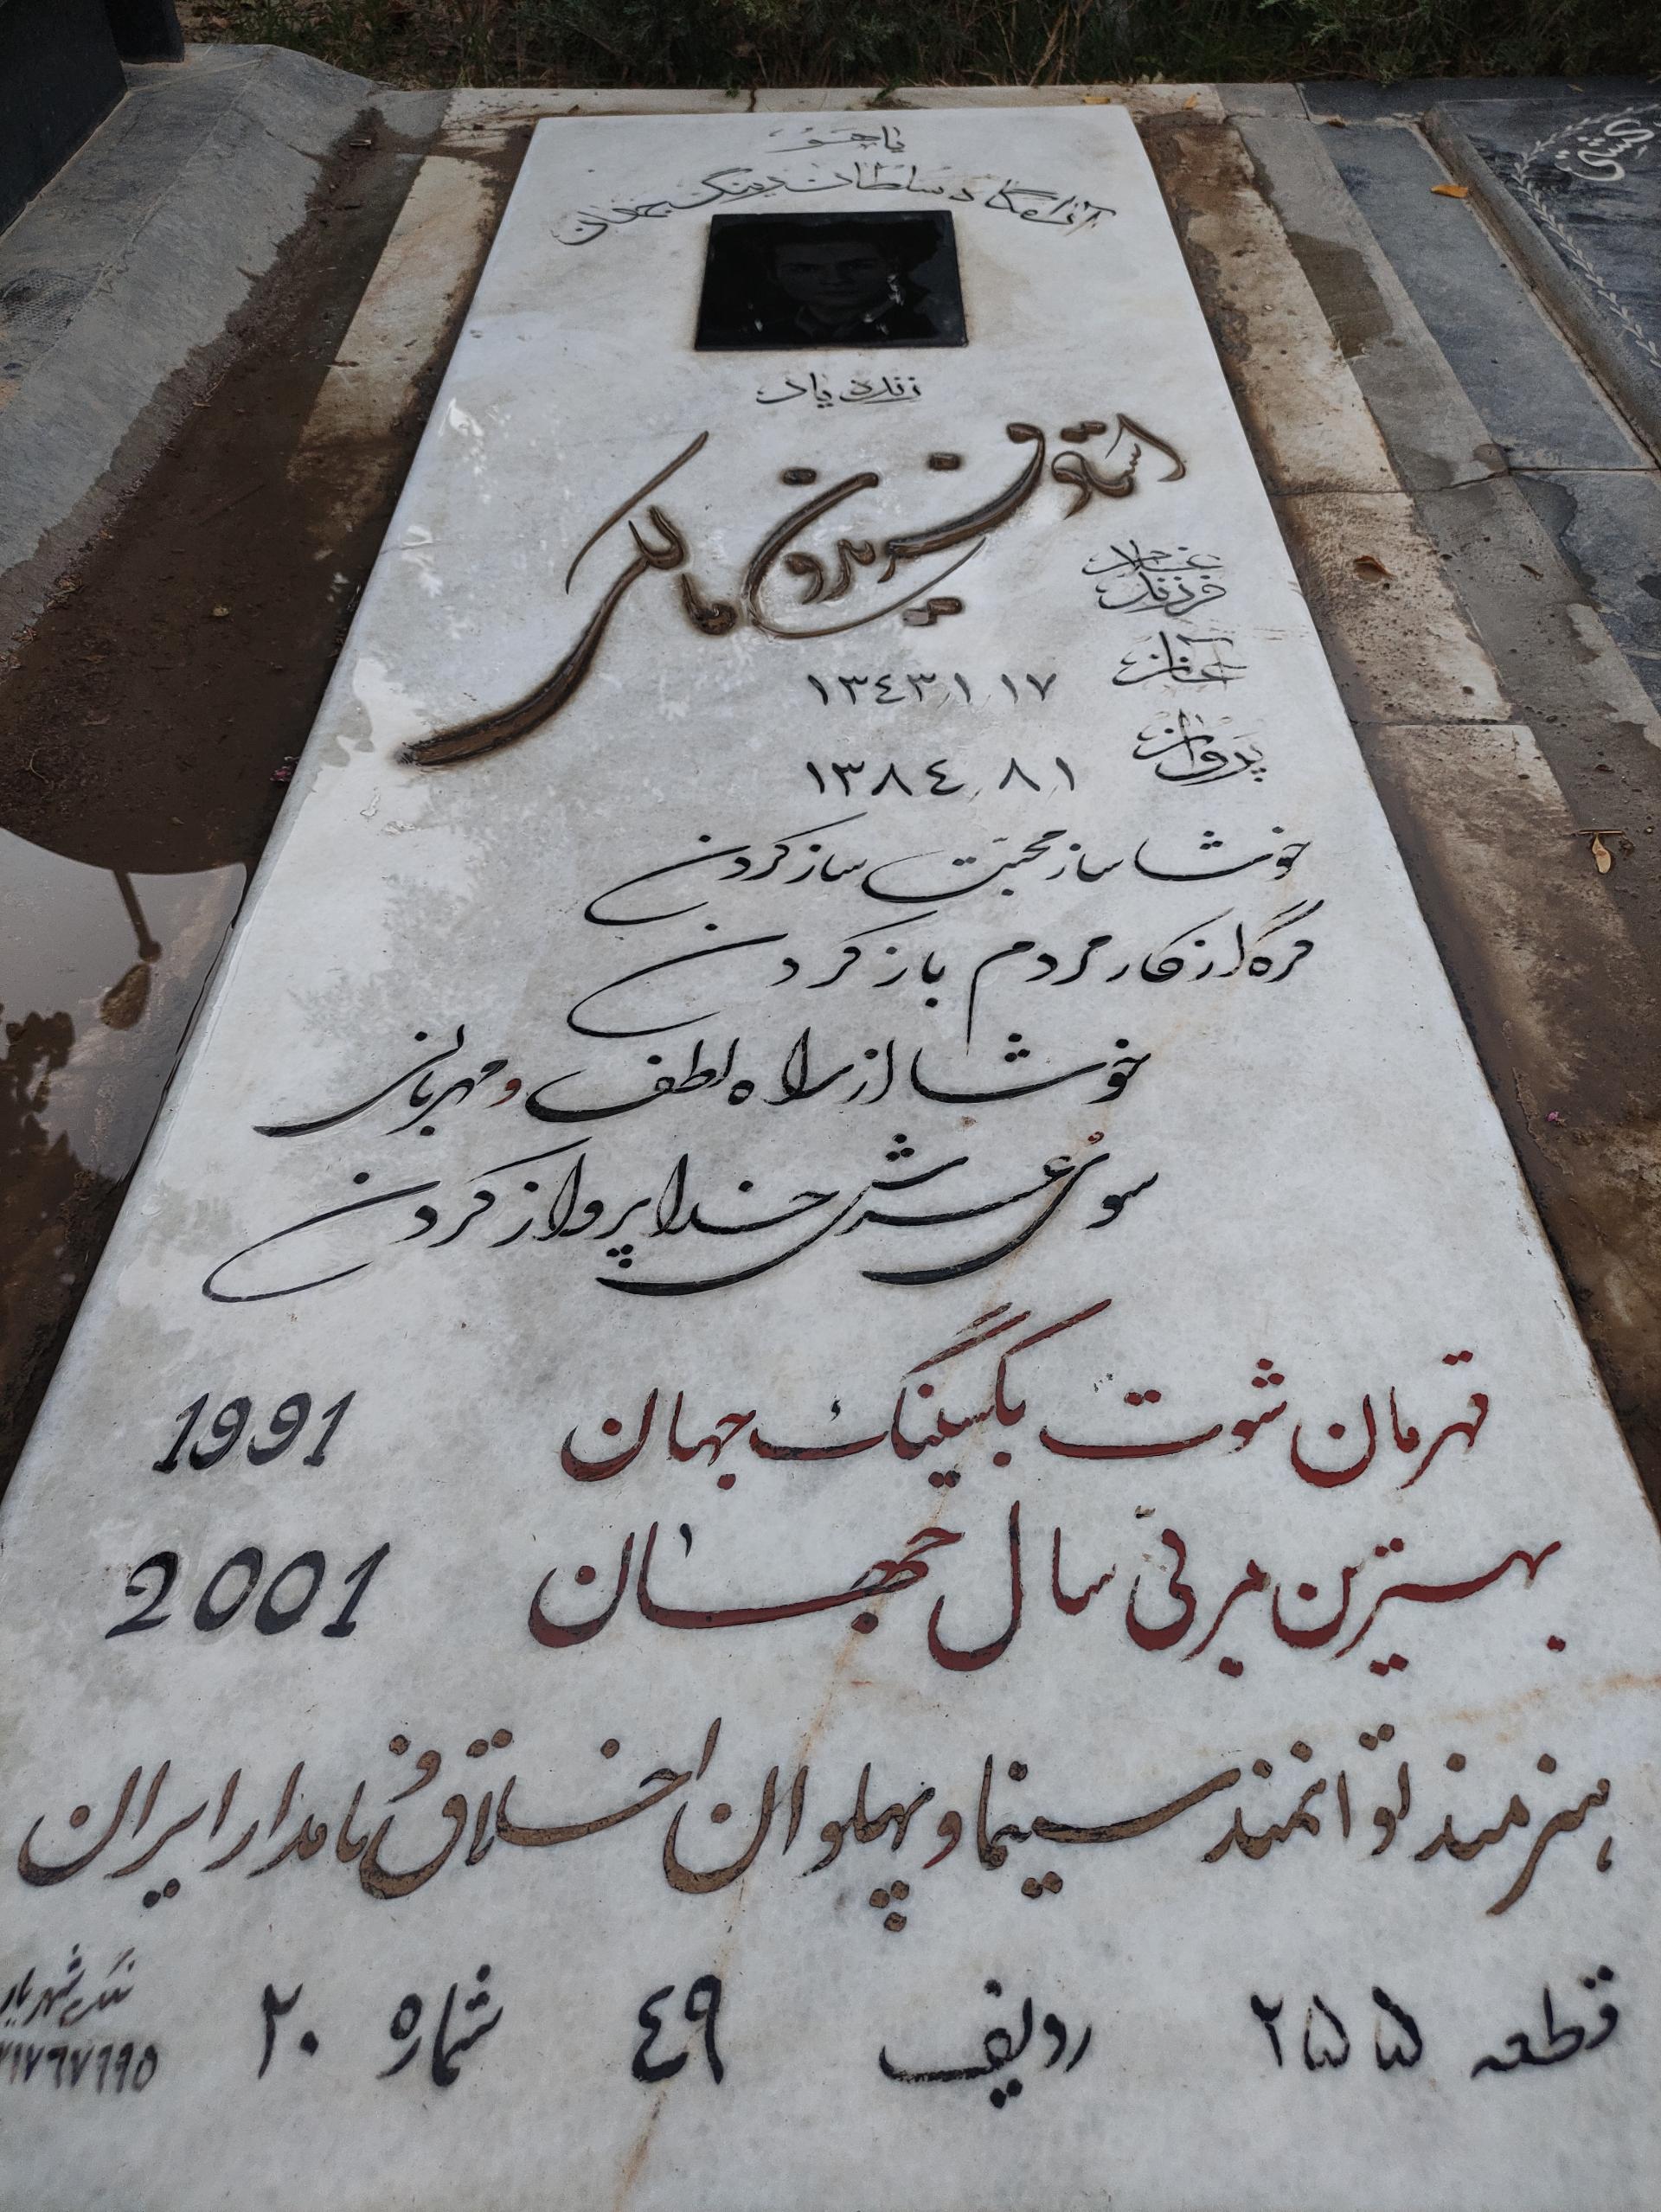 یا حق
آرامگاه سلطان رینگ جهان
زنده یاد
استاد فریدون مالکی
فرزند
آغاز ۱۳۴۳٫۱٫۱۷
پرواز ۱۳۸٤٫۸٫۱
خوشا ساز محبّت ساز کردن
گره از کار مردم باز کردن
خوشا از راه لطف و مهربانی
سوی عرش خدا پرواز کردن
قهرمان شوت بکسینگ جهان 1991
بهترین مربّی سال جهان 2001
هنرمند توانمند سینما و پهلوان اخلاق و نامدار ایران
قطعه ۲۵۵ ردیف ٤۹ شماره ۲۰